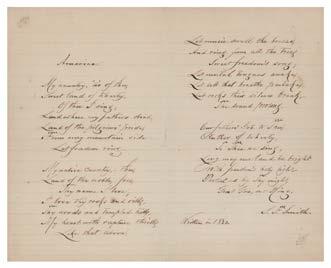 America
My country, 'tis of thee,
Sweet land of liberty,
Of thee I sing;
Land where my fathers died,
Land of the pilgrims' pride,
From every mountain side
Let freedom ring.
My native country, thee
Land of the noble, free,
Thy name I love;
I love thy rocks and rills,
Thy woods and templed hills,
My heart with rapture thrills
Like that above.
Let music swell the breeze,
And ring from all the trees
Sweet freedom's song;
Let mortal tongues awake;
Let all that breathe partake;
Let rocks their silence break,
The sound prolong.
Our fathers' God, to Thee
Author of liberty,
To Thee we sing;
Long may our land be bright
With freedom's holy light;
Protect us by Thy might
Great God, our King.
S. F. Smith.
Written in 1832.